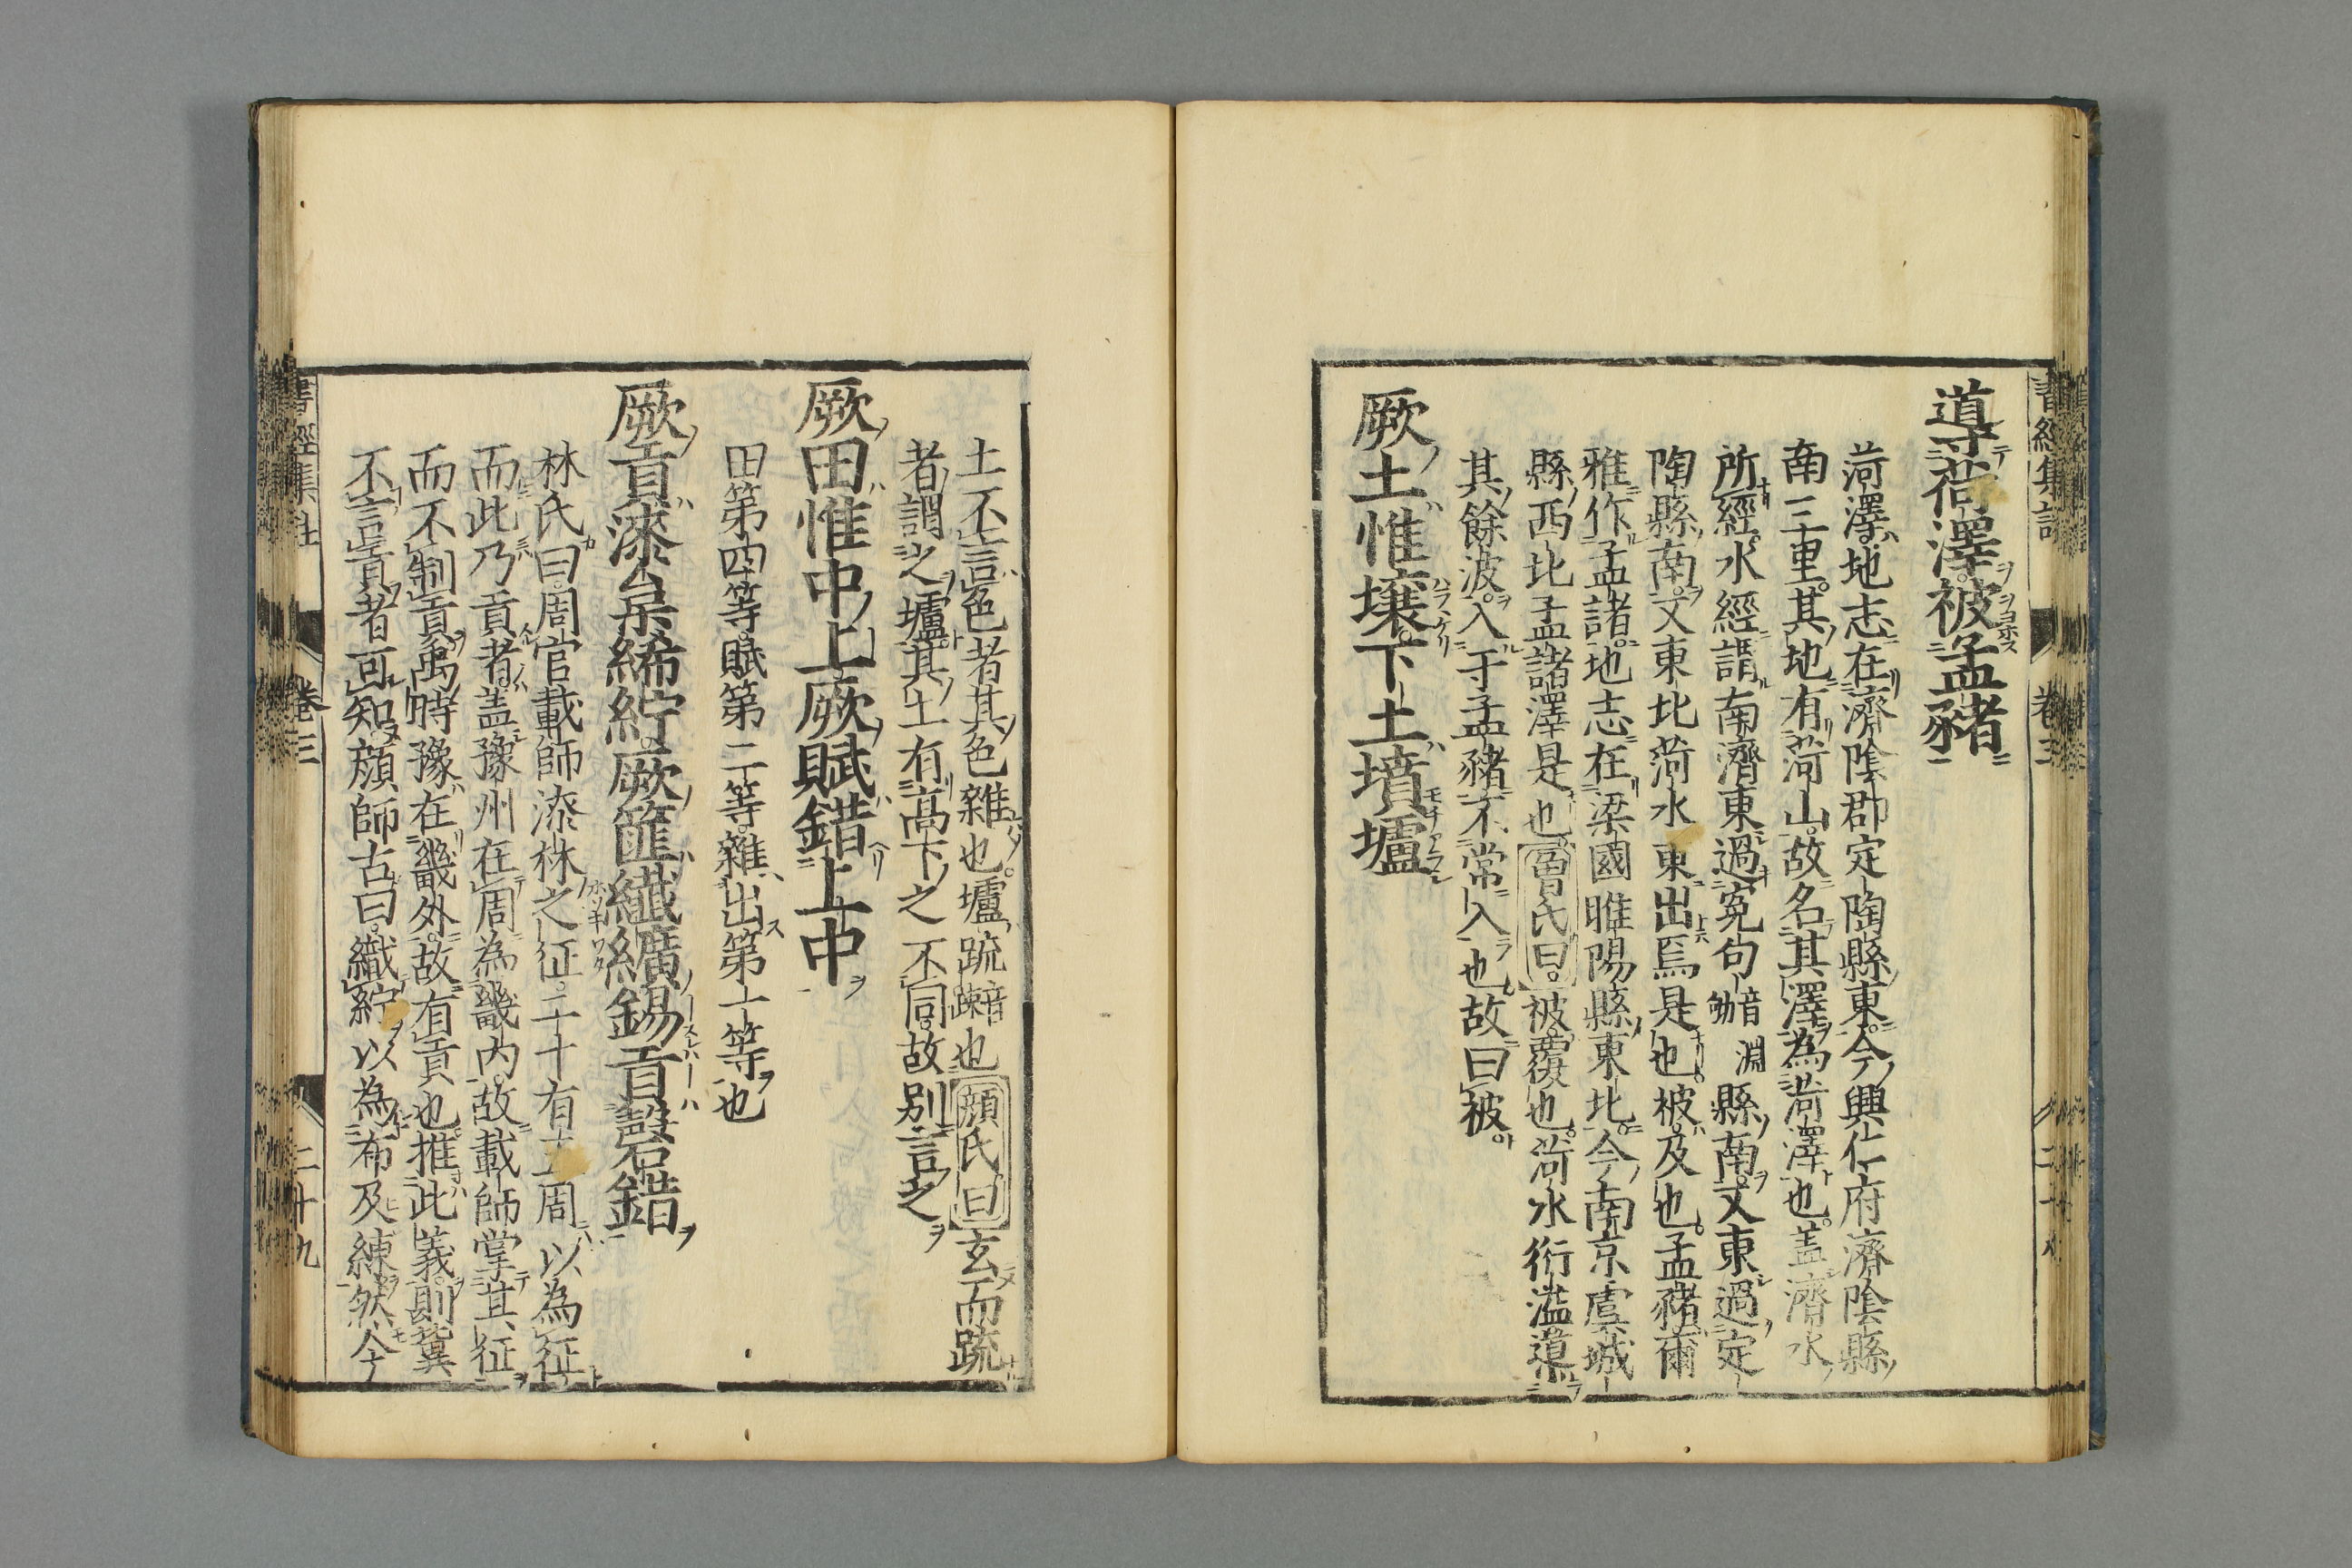 導菏澤。被孟豬
菏澤。地志在濟陰郡定陶縣東。今興仁府濟陰縣
南三里。其地有菏山。故名其澤為菏澤也。盖濟水
所經。水經謂南濟東過冤句音劬淵縣南。又東過定
陶縣南。又東北菏水東出焉是也。被。及也。孟豬。爾
雅作孟諸。地志在梁國睢陽縣東北。今南京虞城
縣西北孟諸澤是也。曾氏曰。被。覆也。菏水衍溢。導
其餘波。入于孟豬。不常入也。故曰被。
厥土惟壤。下土墳壚
土不言色者。其色雜也。壚。疏音踈也顔氏曰玄而疏
者。謂之壚。其土有高下之不同。故別言之
厥田惟中上。厥賦錯上中
田第四等。賦第二等。雜出第一等也
厥貢漆枲絺紵。厥篚纖纊。錫貢磬錯
林氏曰。周官載師漆林之征。二十有五。周以為征
而此乃貢者。盖豫州在周為畿内。故載師掌其征
而不制貢。禹時豫在畿外。故有貢也。推此義。則冀
不言貢者可知。顔師古曰。織紵以為布及練。然今
書經集註 卷三 二十九